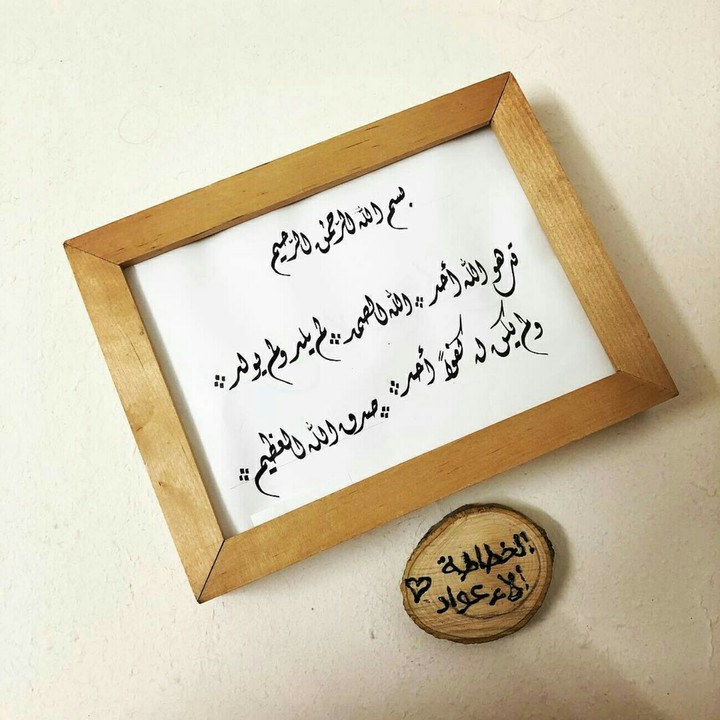 بسم الله الرحمن الرحيم
قل هو الله أحد ۞ الله الصمد ۞ لم يلد ولم يولد ۞
ولم يكن له كفواً أحد ۞
۞ صدق الله العظيم ۞
الخطاطة
آلاء عواد ♡